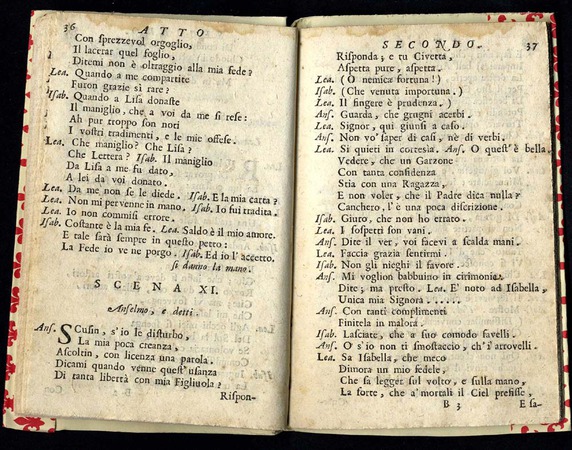 36
ATTO
Con sprezzevol orgoglio,
Il lacerar quel foglio,
Ditemi non è oltraggio alla mia fede?
Lea. Quando a me compartite
Furon grazie sì rare?
Isab. Quando a Lisa donaste
Il maniglio, che a voi da me si rese:
Ah pur troppo son noti
I vostri tradimenti, e le mie offese.
Lea. Che maniglio? Che Lisa?
Che Lettera? Isab. Il maniglio
Da Lisa a me fu dato,
A lei da voi donato.
Lea. Da me non se le diede. Isab. E la mia carta?
Lea. Non mi pervenne in mano. Isab. Io fui tradita.
Lea. Io non commisi errore.
Isab. Costante è la mia fe. Lea. Saldo è il mio amore.
E tale sarà sempre in questo petto:
La Fede io ve ne porgo. Isab. Ed io l'accetto.
si danno la mano.
SCENA XI.
Anselmo, e detti.
Ans. SCusin, s'io le disturbo,
La mia poca creanza,
Ascoltin, con licenza una parola.
Dicami quando venne quest'usanza
Di tanta libertà con mia Figliuola?
Rispon-
SECONDO.
37
Risponda, e tu Civetta,
Aspetta pure, aspetta.
Lea. (O nemica fortuna!)
Isab. (Che venuta importuna.)
Lea. Il fingere è prudenza.)
Ans. Guarda, che grugni acerbi.
Lea. Signor, qui giunsi a caso.
Ans. Non vo' saper di casi, nè di verbi.
Lea. Si quieti in cortesia. Ans. O quest'è bella
Vedere, che un Garzone
Con tanta confidenza
Stia con una Ragazza,
E non voler, che il Padre dica nulla?
Canchero, l'è una poca discrizione.
Isab. Giuro, che non ho errato.
Lea. I sospetti son vani.
Ans. Dite il ver, voi facevi a scalda mani.
Lea. Faccia grazia sentirmi.
Isab. Non gli nieghi il favore.
Ans. Mi voglion babbuino in cirimonia.
Dite; ma presto. Lea. E' noto ad Isabella,
Unica mia Signora......
Ans. Con tanti complimenti
Finitela in malora.
Isab. Lasciate, che a suo comodo favelli.
Ans. O s'io non ti smostaccio, ch'i' arrovelli.
Lea. Sa Isabella, che meco
Dimora un mio fedele,
Che sa legger sul volto, e sulla mano,
La sorte, che a' mortali il Ciel prefisse,
B 3
E sa-